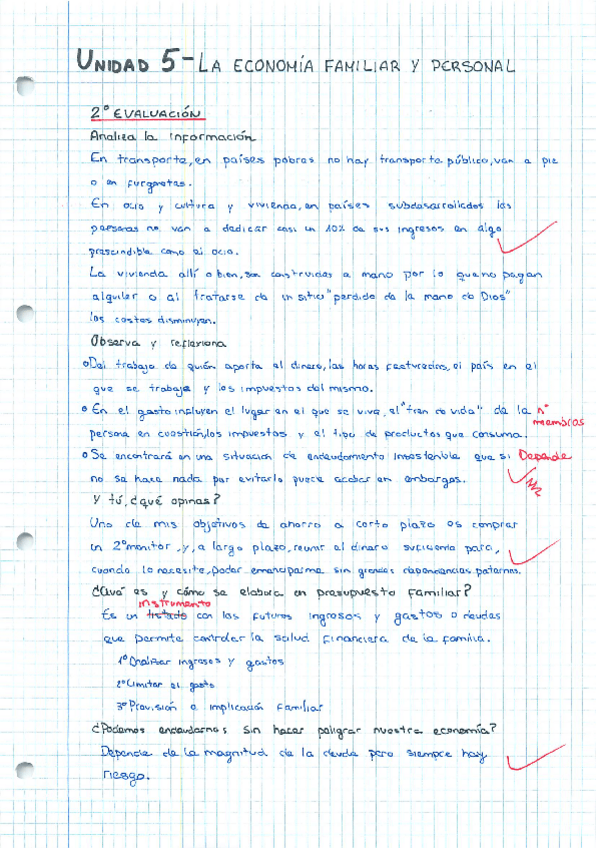 UNIDAD 5 - LA ECONOMÍA FAMILIAR Y PERSONAL
2ª EVALUACIÓN
Analiza la información
En transporte, en países pobres no hay transporte público, van a pie
o en furgonetas.
En ocio y cultura y vivienda, en países subdesarrollados las
personas no van a dedicar casi un 10% de sus ingresos en algo
prescindible como el ocio.
La vivienda allí o bien, son construidas a mano por lo que no pagan
alquiler o al tratarse de un sitio "perdido de la mano de Dios"
los costes disminuyen.
Observa y reflexiona
Del trabajo de quién aporta el dinero, las horas facturadas, el país en el
que se trabaja y los impuestos del mismo.
En el gasto influyen el lugar en el que se viva, el "tren de vida" de la nº
miembros
persona en cuestión, los impuestos y el tipo de productos que consuma.
Se encontrará en una situación de endeudamiento insostenible que si Depende
no se hace nada por evitarlo puede acabar en embargos.
Y tú, ¿qué opinas?
Uno de mis objetivos de ahorro a corto plazo es comprar
un 2º monitor, y, a largo plazo, reunir el dinero suficiente para,
cuando lo necesite, poder emanciparme sin grandes dependencias paternas.
¿Qué es y cómo se elabora en presupuesto familiar?
instrumento
Es un tratado con los futuros ingresos y gastos o deudas
que permite controlar la salud financiera de la familia.
1º Analizar ingresos y gastos
2º Limitar el gasto
3º Previsión e implicación familiar
¿Podemos endeudarnos sin hacer peligrar nuestra economía?
Depende de la magnitud de la deuda pero siempre hay
riesgo.